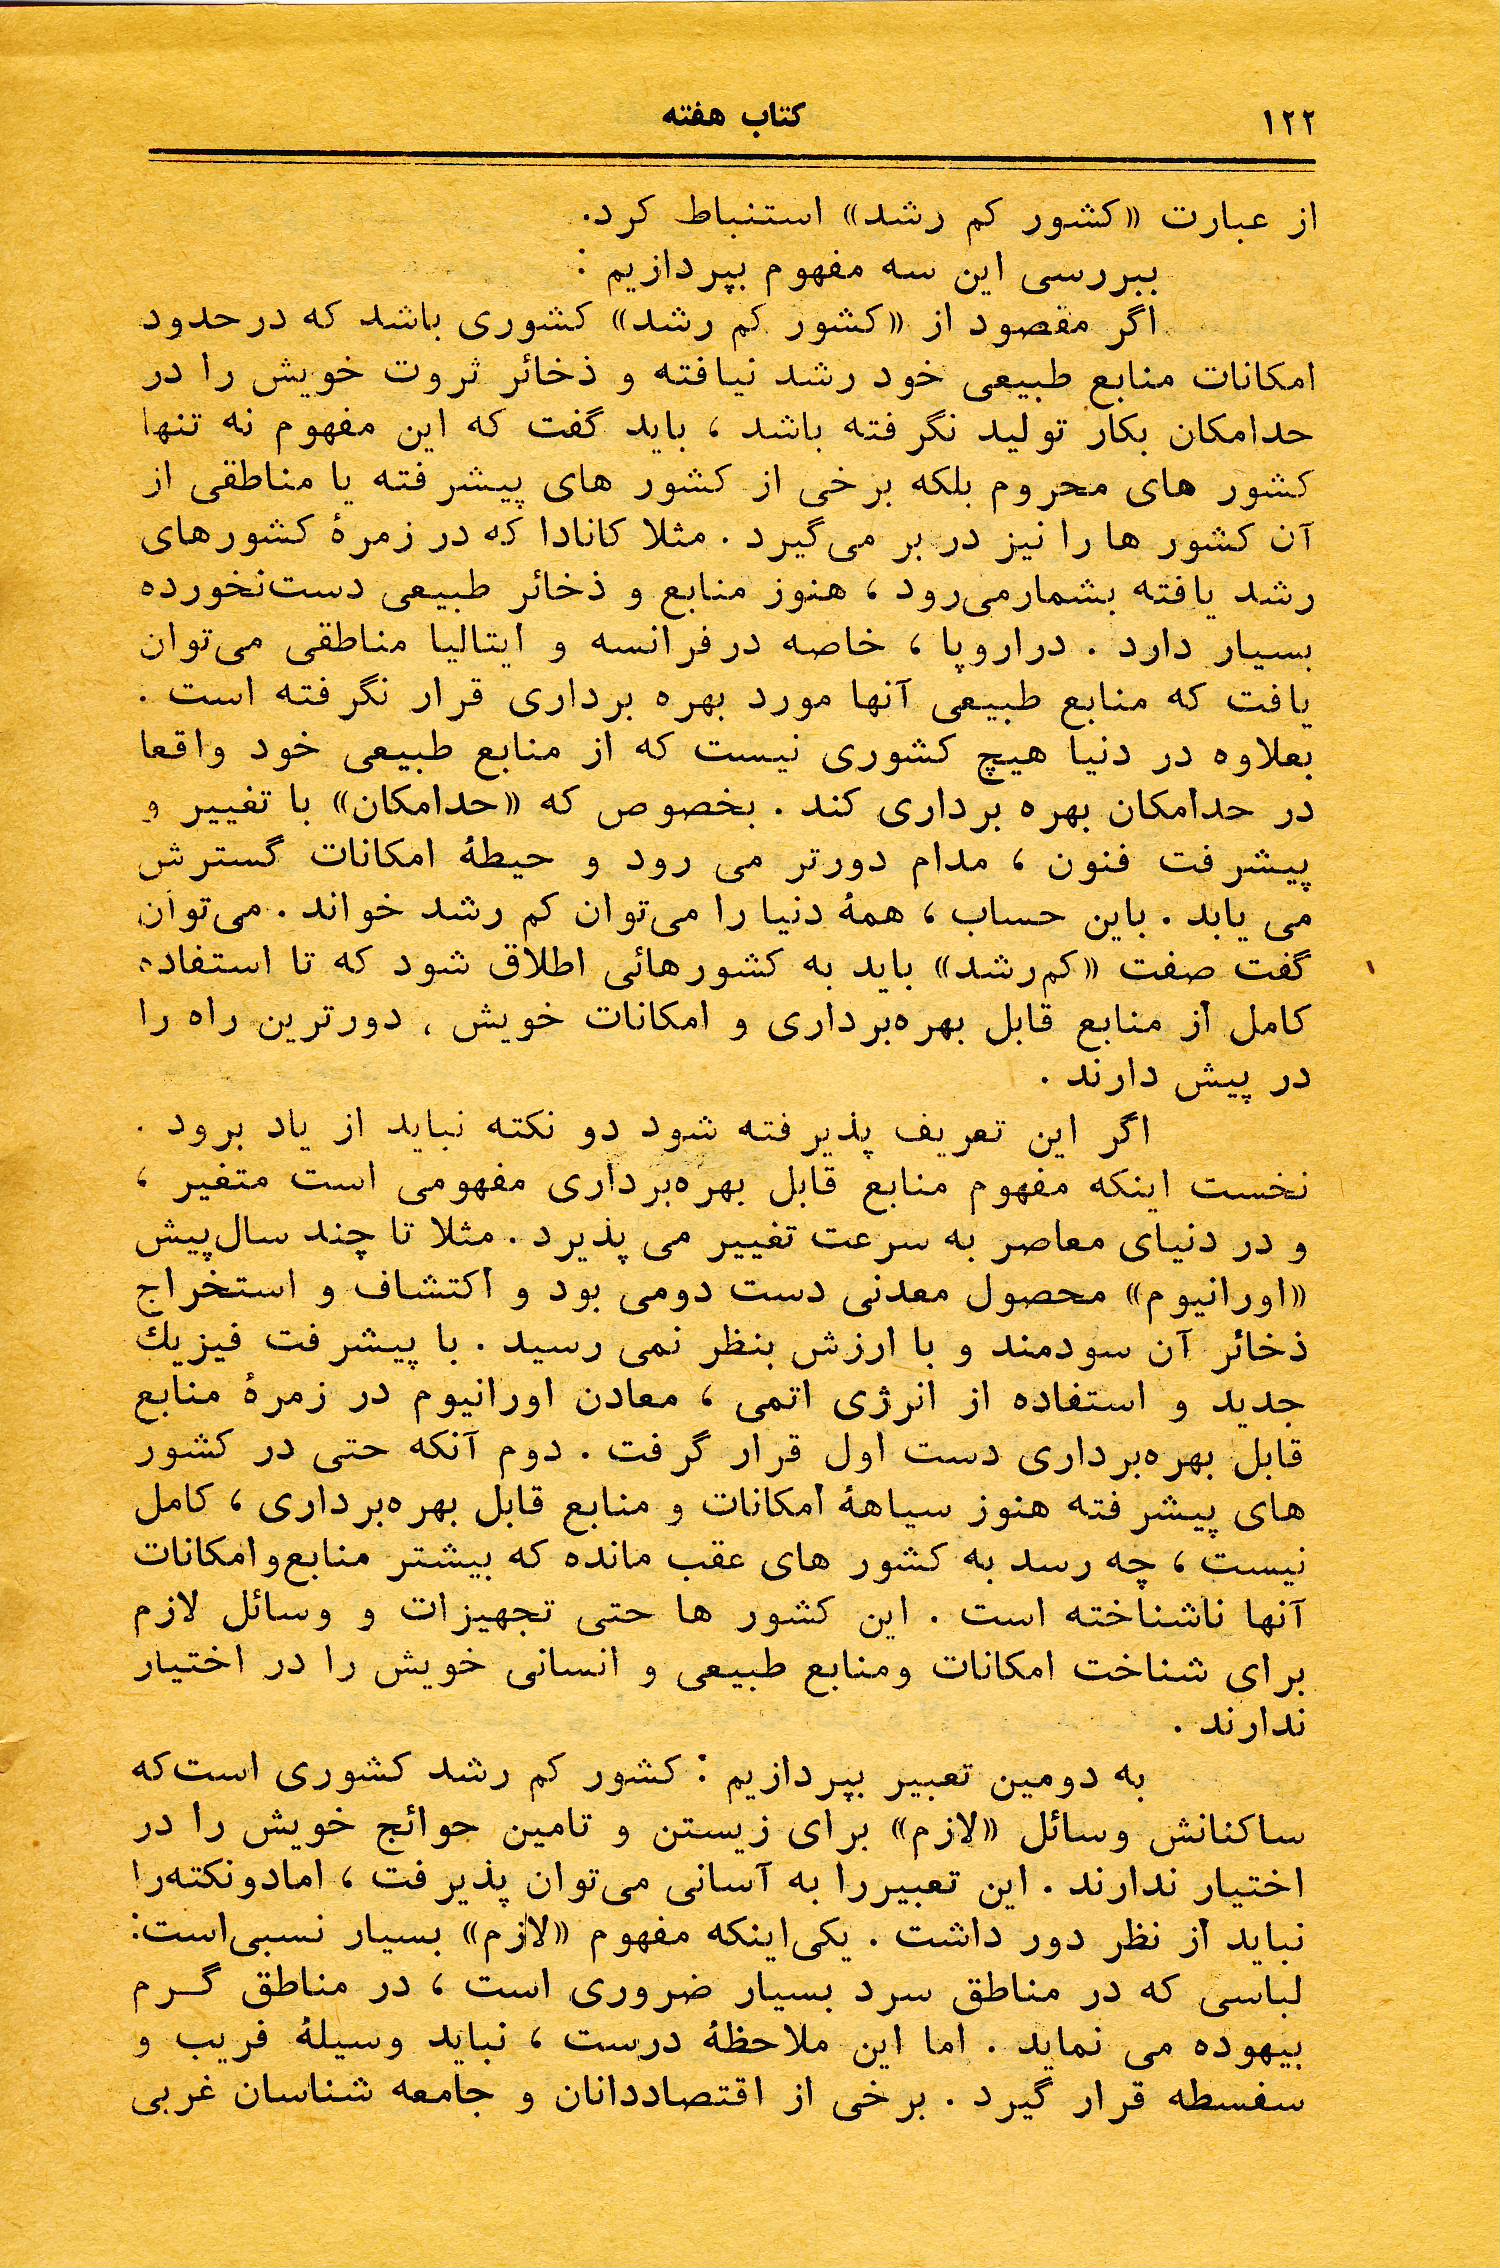 ۱۲۲
کتاب هفته
از عبارت «کشور کم رشد» استنباط کرد.
ببررسی این سه مفهوم بپردازیم :
اگر مقصود از «کشور کم رشد» کشوری باشد که درحدود
امکانات منابع طبیعی خود رشد نیافته و ذخائر ثروت خویش را در
حدامکان بکار تولید نگرفته باشد ، باید گفت که این مفهوم نه تنها
کشور های محروم بلکه برخی از کشور های پیشرفته یا مناطقی از
آن کشور ها را نیز در بر می‌گیرد . مثلا کانادا که در زمرۀ کشورهای
رشد یافته بشمارمی‌رود ، هنوز منابع و ذخائر طبیعی دست‌نخورده
بسیار دارد . دراروپا ، خاصه درفرانسه و ایتالیا مناطقی می‌توان
یافت که منابع طبیعی آنها مورد بهره برداری قرار نگرفته است .
بعلاوه در دنیا هیچ کشوری نیست که از منابع طبیعی خود واقعا
در حدامکان بهره برداری کند . بخصوص که «حدامکان» با تغییر و
پیشرفت فنون ، مدام دورتر می رود و حیطۀ امکانات گسترش
می یابد . باین حساب ، همۀ دنیا را می‌توان کم رشد خواند . می‌توان
گفت صفت «کم‌رشد» باید به کشورهائی اطلاق شود که تا استفاده
کامل از منابع قابل بهره‌برداری و امکانات خویش ، دورترین راه را
در پیش دارند .
اگر این تعریف پذیرفته شود دو نکته نباید از یاد برود .
نخست اینکه مفهوم منابع قابل بهره‌برداری مفهومی است متغیر ،
و در دنیای معاصر به سرعت تغییر می پذیرد . مثلا تا چند سال‌پیش
«اورانیوم» محصول معدنی دست دومی بود و اکتشاف و استخراج
ذخائر آن سودمند و با ارزش بنظر نمی رسید . با پیشرفت فیزیك
جدید و استفاده از انرژی اتمی ، معادن اورانیوم در زمرۀ منابع
قابل بهره‌برداری دست اول قرار گرفت . دوم آنکه حتی در کشور
های پیشرفته هنوز سیاهۀ امکانات و منابع قابل بهره‌برداری ، کامل
نیست ، چه رسد به کشور های عقب مانده که بیشتر منابع‌وامکانات
آنها ناشناخته است . این کشور ها حتی تجهیزات و وسائل لازم
برای شناخت امکانات ومنابع طبیعی و انسانی خویش را در اختیار
ندارند .
به دومین تعبیر بپردازیم : کشور کم رشد کشوری است‌که
ساکنانش وسائل «لازم» برای زیستن و تامین حوائج خویش را در
اختیار ندارند . این تعبیررا به آسانی می‌توان پذیرفت ، امادونکته‌را
نباید از نظر دور داشت . یکی‌اینکه مفهوم «لازم» بسیار نسبی‌است:
لباسی که در مناطق سرد بسیار ضروری است ، در مناطق گـرم
بیهوده می نماید . اما این ملاحظۀ درست ، نباید وسیلۀ فریب و
سفسطه قرار گیرد . برخی از اقتصاددانان و جامعه شناسان غربی